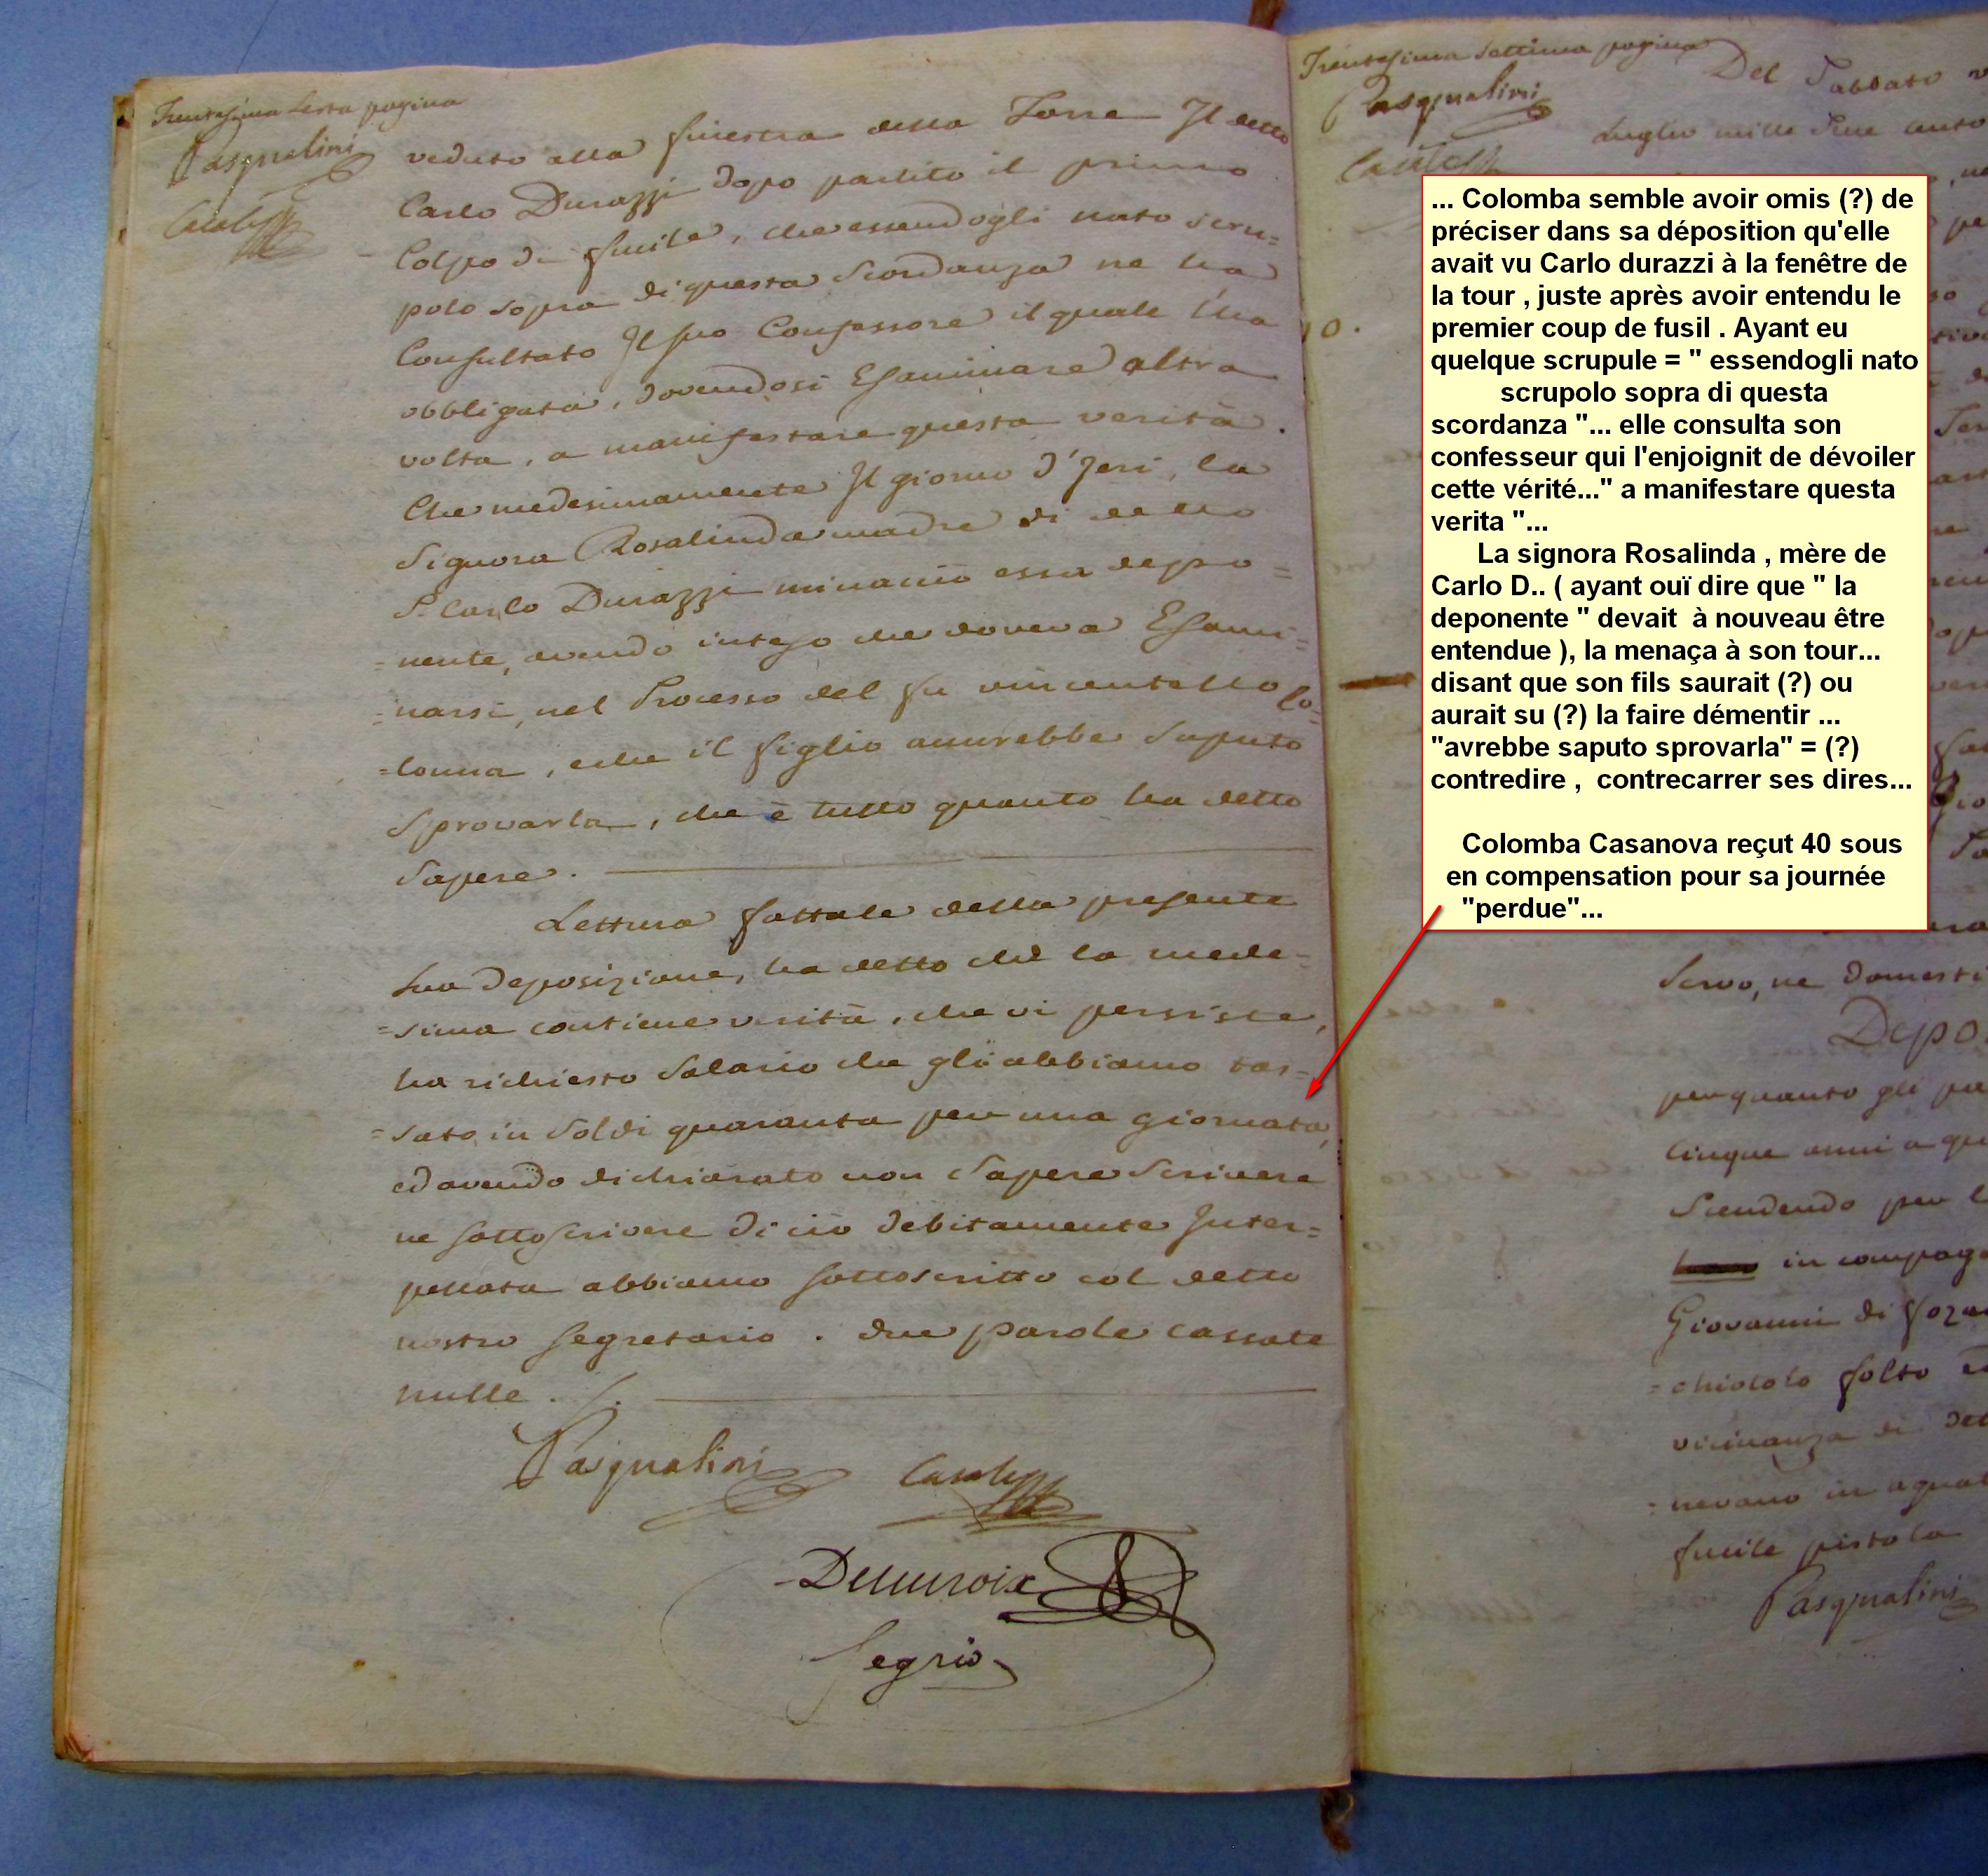 Trentesima Sesta pagina
Pasqualini
veduto alla finestra della Torre Il detto
Carlo Durazzi dopo partito il primo
Colpo di fucile, che essendogli nato scru=
polo sopra di questa Scordanza ne ha
Consultato Il suo Confessore il quale l'ha
obbligata, dovendosi Esaminare altra
volta, a manifestare questa verità.
Che medesimamente Il giorno d'Jeri, la
Signora Rosalinda madre di detto
S.r Carlo Durazzi minacciò essa depo=
=nente, avendo inteso che doveva Esami=
=narsi, nel Processo del fu vincentello Co=
=lonna, e che il figlio avurebbe Saputo
Sprovarla, che è tutto quanto ha detto
Sapere.
Lettura fattale della presente
sua deposizione, ha detto che la mede=
=sima contiene verità, che vi persiste,
ha richiesto Salario che gli abbiamo tas=
=sato in Soldi quaranta per una giornata,
ed avendo dichiarato non Sapere Scrivere
ne sottoscrivere di ciò debitamente Inter=
pellata abbiamo sottoscritto col detto
nostro Segretario. due parole cassate
nulle.
Pasqualini
Segrio
Trentesima Settima pagina
Pasqualini
Del Sabbato
Luglio mille
... Colomba semble avoir omis (?) de
préciser dans sa déposition qu'elle
avait vu Carlo durazzi à la fenêtre de
la tour , juste après avoir entendu le
premier coup de fusil . Ayant eu
quelque scrupule = " essendogli nato
scrupolo sopra di questa
scordanza "... elle consulta son
confesseur qui l'enjoignit de dévoiler
cette vérité..." a manifestare questa
verita "...
La signora Rosalinda , mère de
Carlo D.. ( ayant ouï dire que " la
deponente " devait à nouveau être
entendue ), la menaça à son tour...
disant que son fils saurait (?) ou
aurait su (?) la faire démentir ...
"avrebbe saputo sprovarla" = (?)
contredire , contrecarrer ses dires...
Colomba Casanova reçut 40 sous
en compensation pour sa journée
"perdue"...
Servo, ne domesti
Depo
per quanto gli
cinque anni a
Scendendo per
in compag
Giovanni di
=chiololo folto
vicinanza di
=nevano in
fucile pistola
Pasqualini